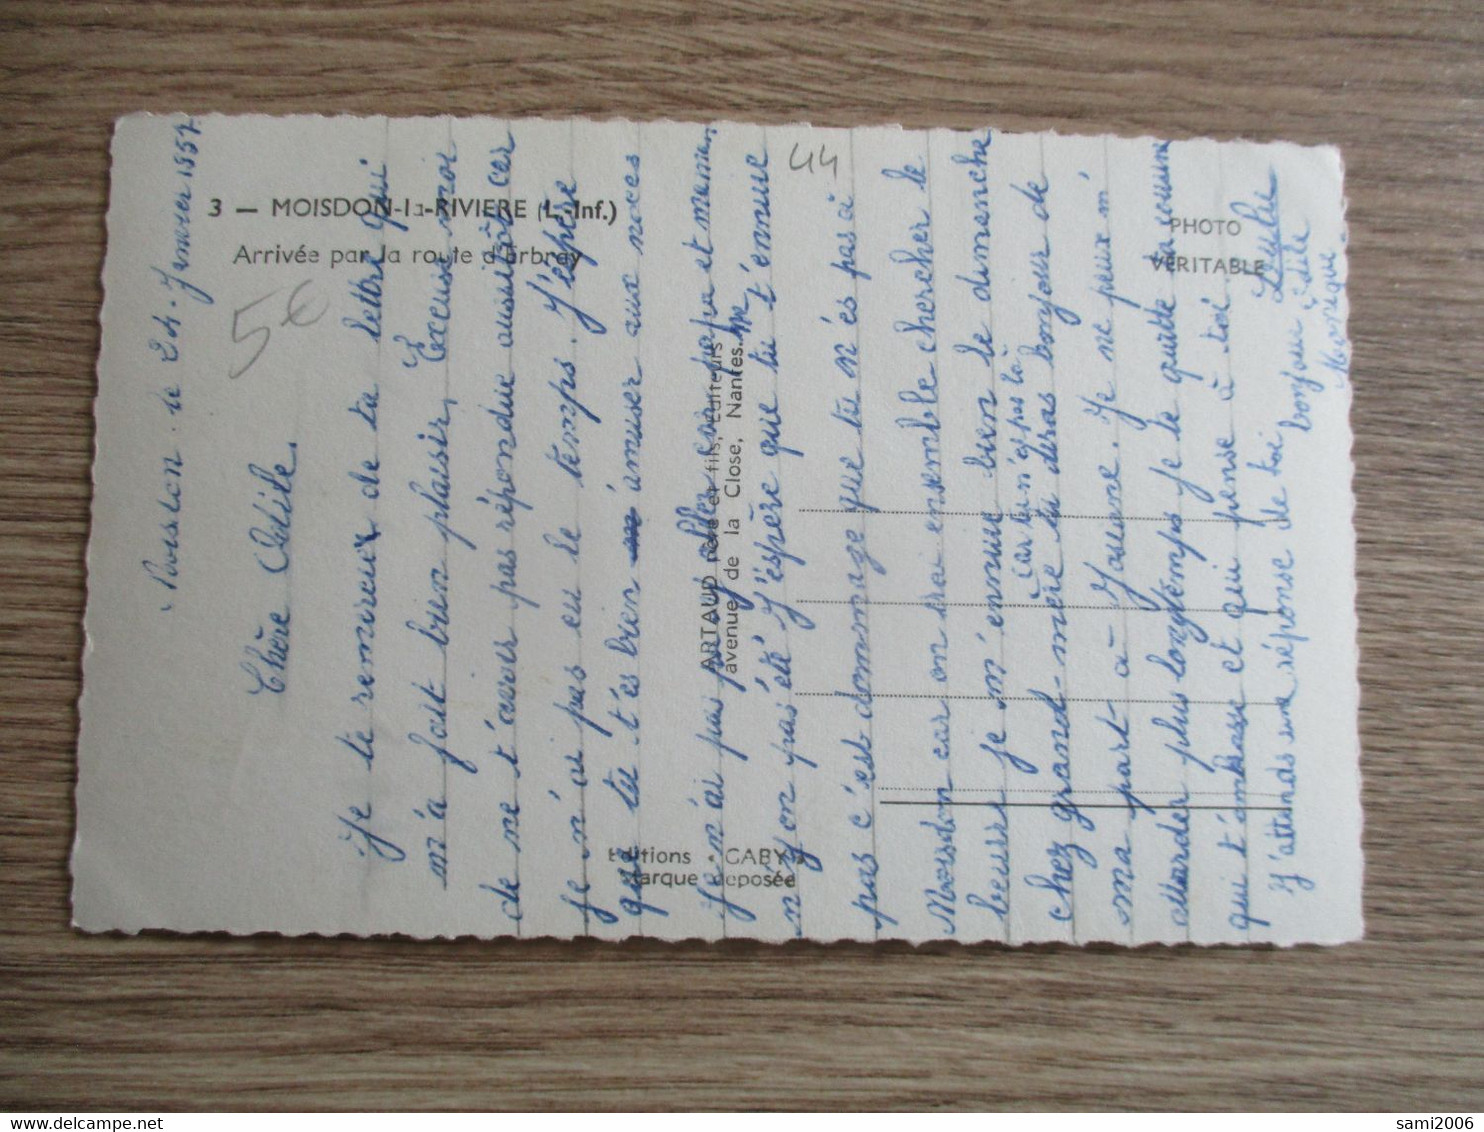 3 — MOISDON-la-RIVIERE (L.-Inf.)
Arrivée par la route d'Erbray
PHOTO
VÉRITABLE
ARTAUD père et fils, éditeurs
avenue de la Close, Nantes
Editions · GABY
Marque déposée
44
5€
Moisdon. le 24. Janvier 1957
Chère Odile
Je te remercie de ta lettre qui
m'a fait bien plaisir, Excuse moi
de ne t'avoir pas répondue aussitôt car
je n'ai pas eu le temps. J'espère
que tu t'es bien amuser aux noces
je n'ai pas pu y aller car papa et maman
n'y on pas été. J'espère que tu t'ennuie
pas c'est dommage que tu n'es pas ai
Moisdon car on irai ensemble chercher le
beurre je m'ennuie bien le dimanche
car tu n'es pas là
chez grand-mère tu diras bonjour de
ma part à Josiane. Je ne peux m'
attarder plus longtemps je te quitte ta cousine
qui t'embrasse et qui pense à toi
J'attends une réponse de toi
bonjour Odile
Monique
sami2006